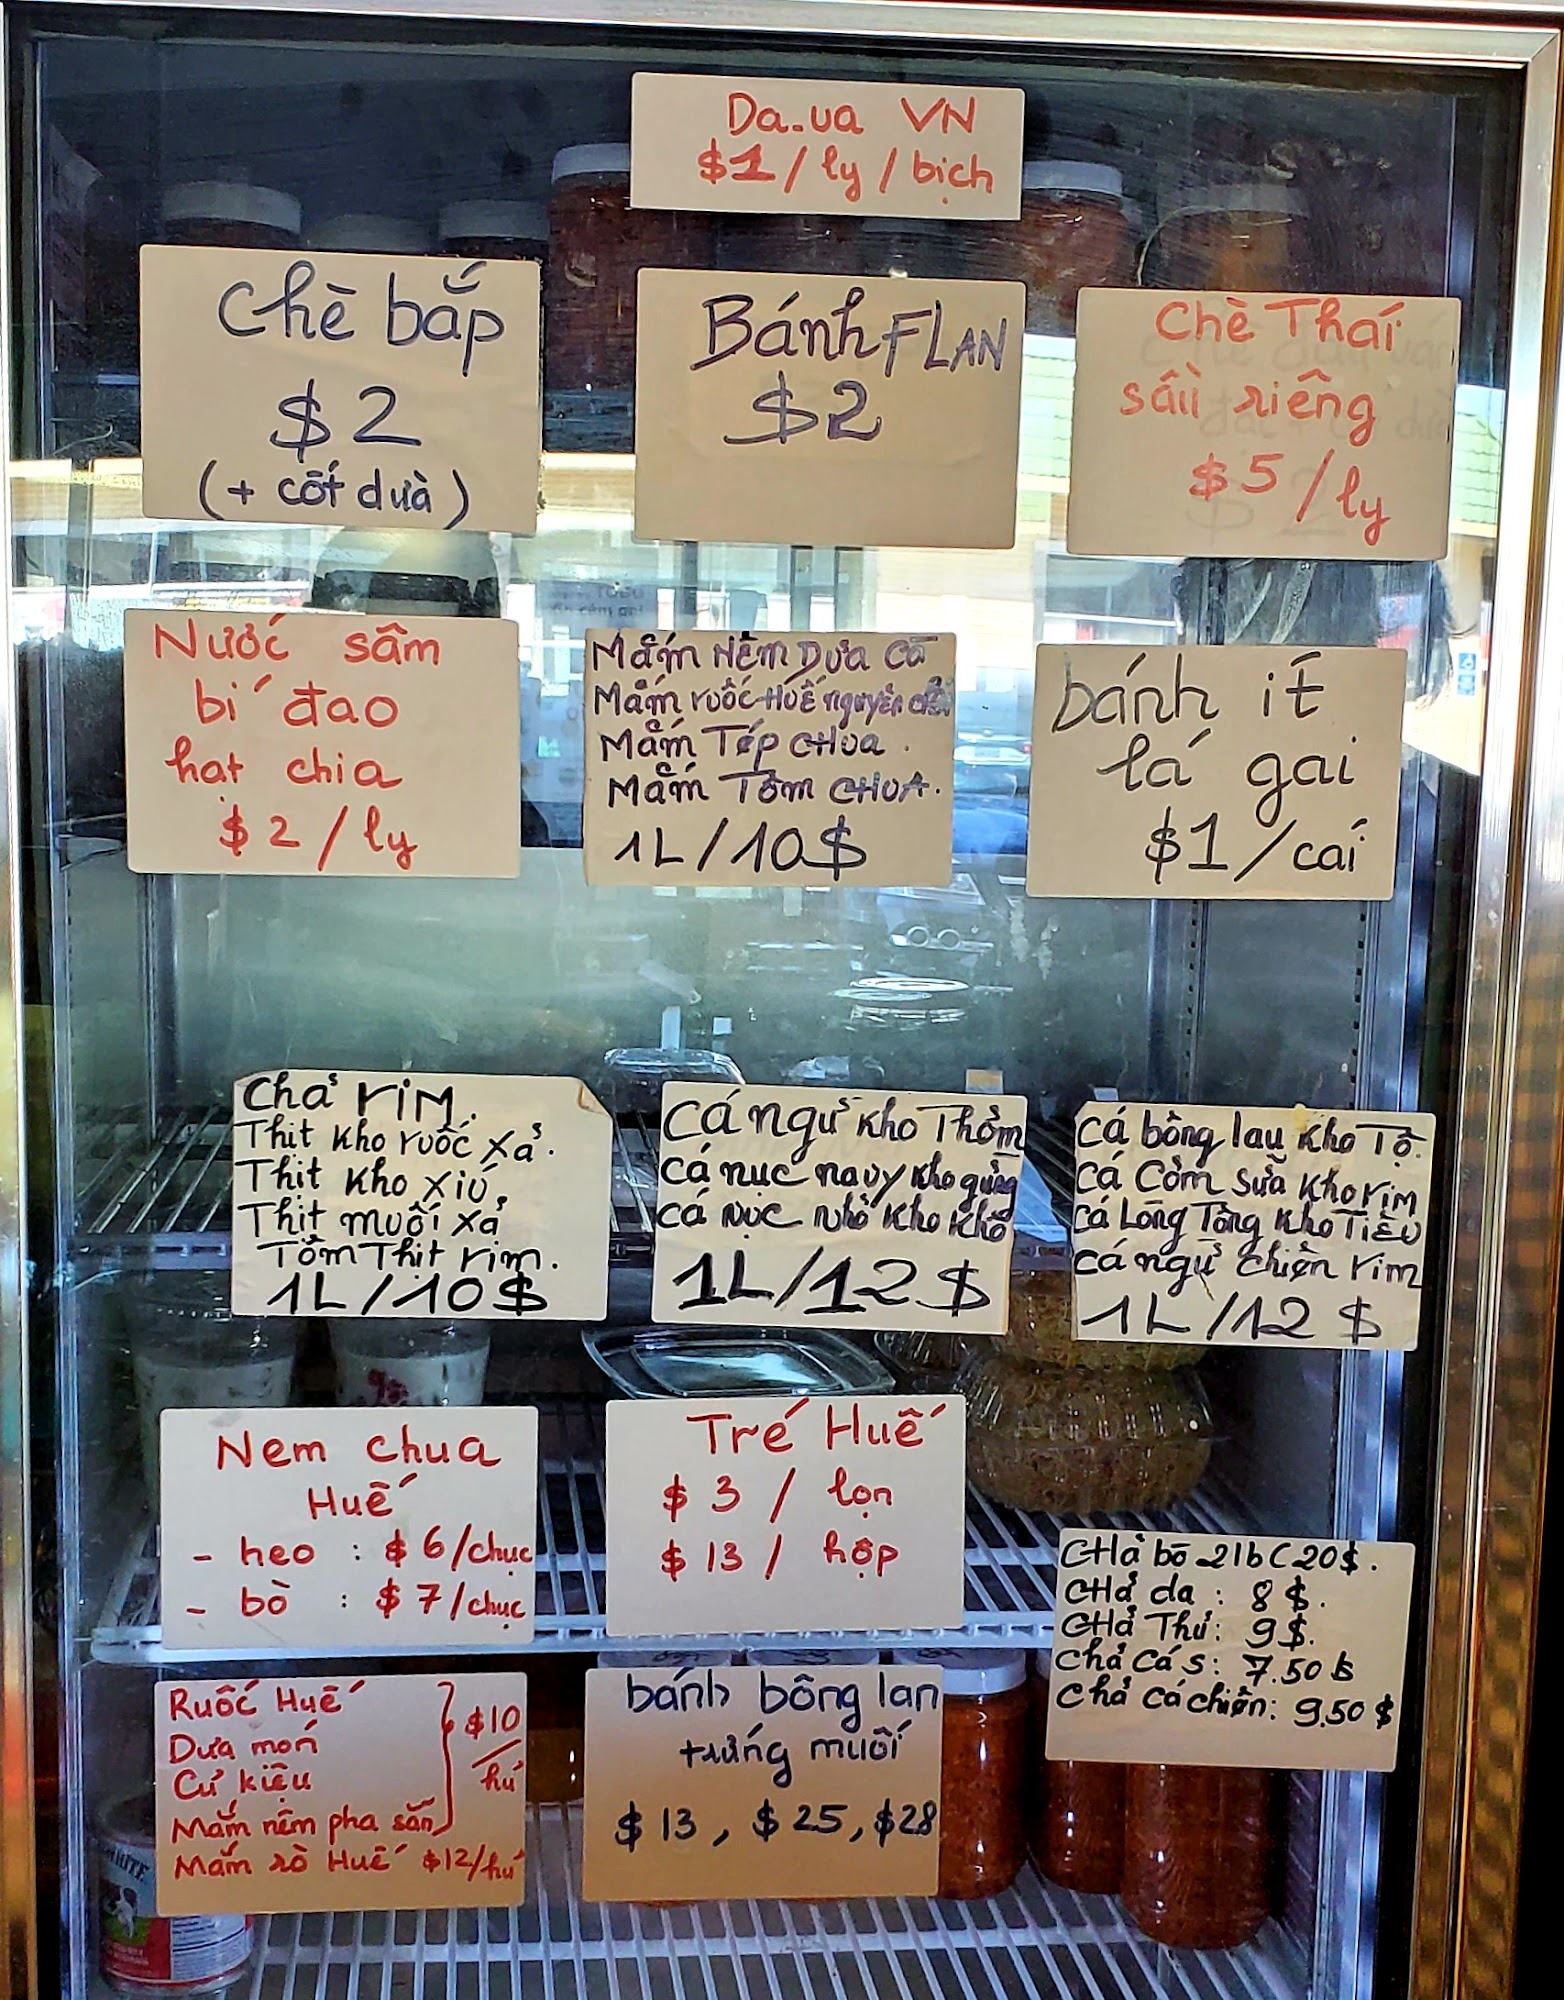 Da.ua VN
$1/ly/bịch
Chè bắp
$2
(+ cốt dừa)
Bánh FLAN
$2
Chè Thái
sầu riêng
$5/ly
Nước sâm
bí đao
hạt chia
$2/ly
Mắm Nêm Dưa Cà
Mắm ruốc Huế nguyên
Mắm Tép CHUA.
Mắm Tôm CHUA.
1L/10$
bánh ít
lá gai
$1/cái
Chả riM.
Thịt Kho ruốc xả.
Thịt Kho xíu.
Thịt muối xả
Tôm Thịt rim.
1L/10$
Cá ngừ Kho Thơm
Cá nục navy Kho gừng
Cá Nục Nhỏ Kho Khô
1L/12$
Cá bông lau Kho Tộ.
Cá Cơm sữa Kho rim
Cá Lòng Tong Kho TiÊU
Cá ngừ chiên rim
1L/12$
Nem chua
Huế
- heo : $6/chục
- bò : $7/chục
Tré Huế
$3 / lọn
$13 / hộp
CHả bò 2lb C 20$.
CHả da : 8$.
CHả Thủ: 9$.
Chả Cá S: 7.50$
Chả Cá chiên: 9.50$
Ruốc Huế
Dưa món
Củ kiệu
Mắm nêm pha sẵn
$10
/hủ
Mắm rò Huế $12/hủ
bánh bông lan
trứng muối
$13, $25, $28
WHITE